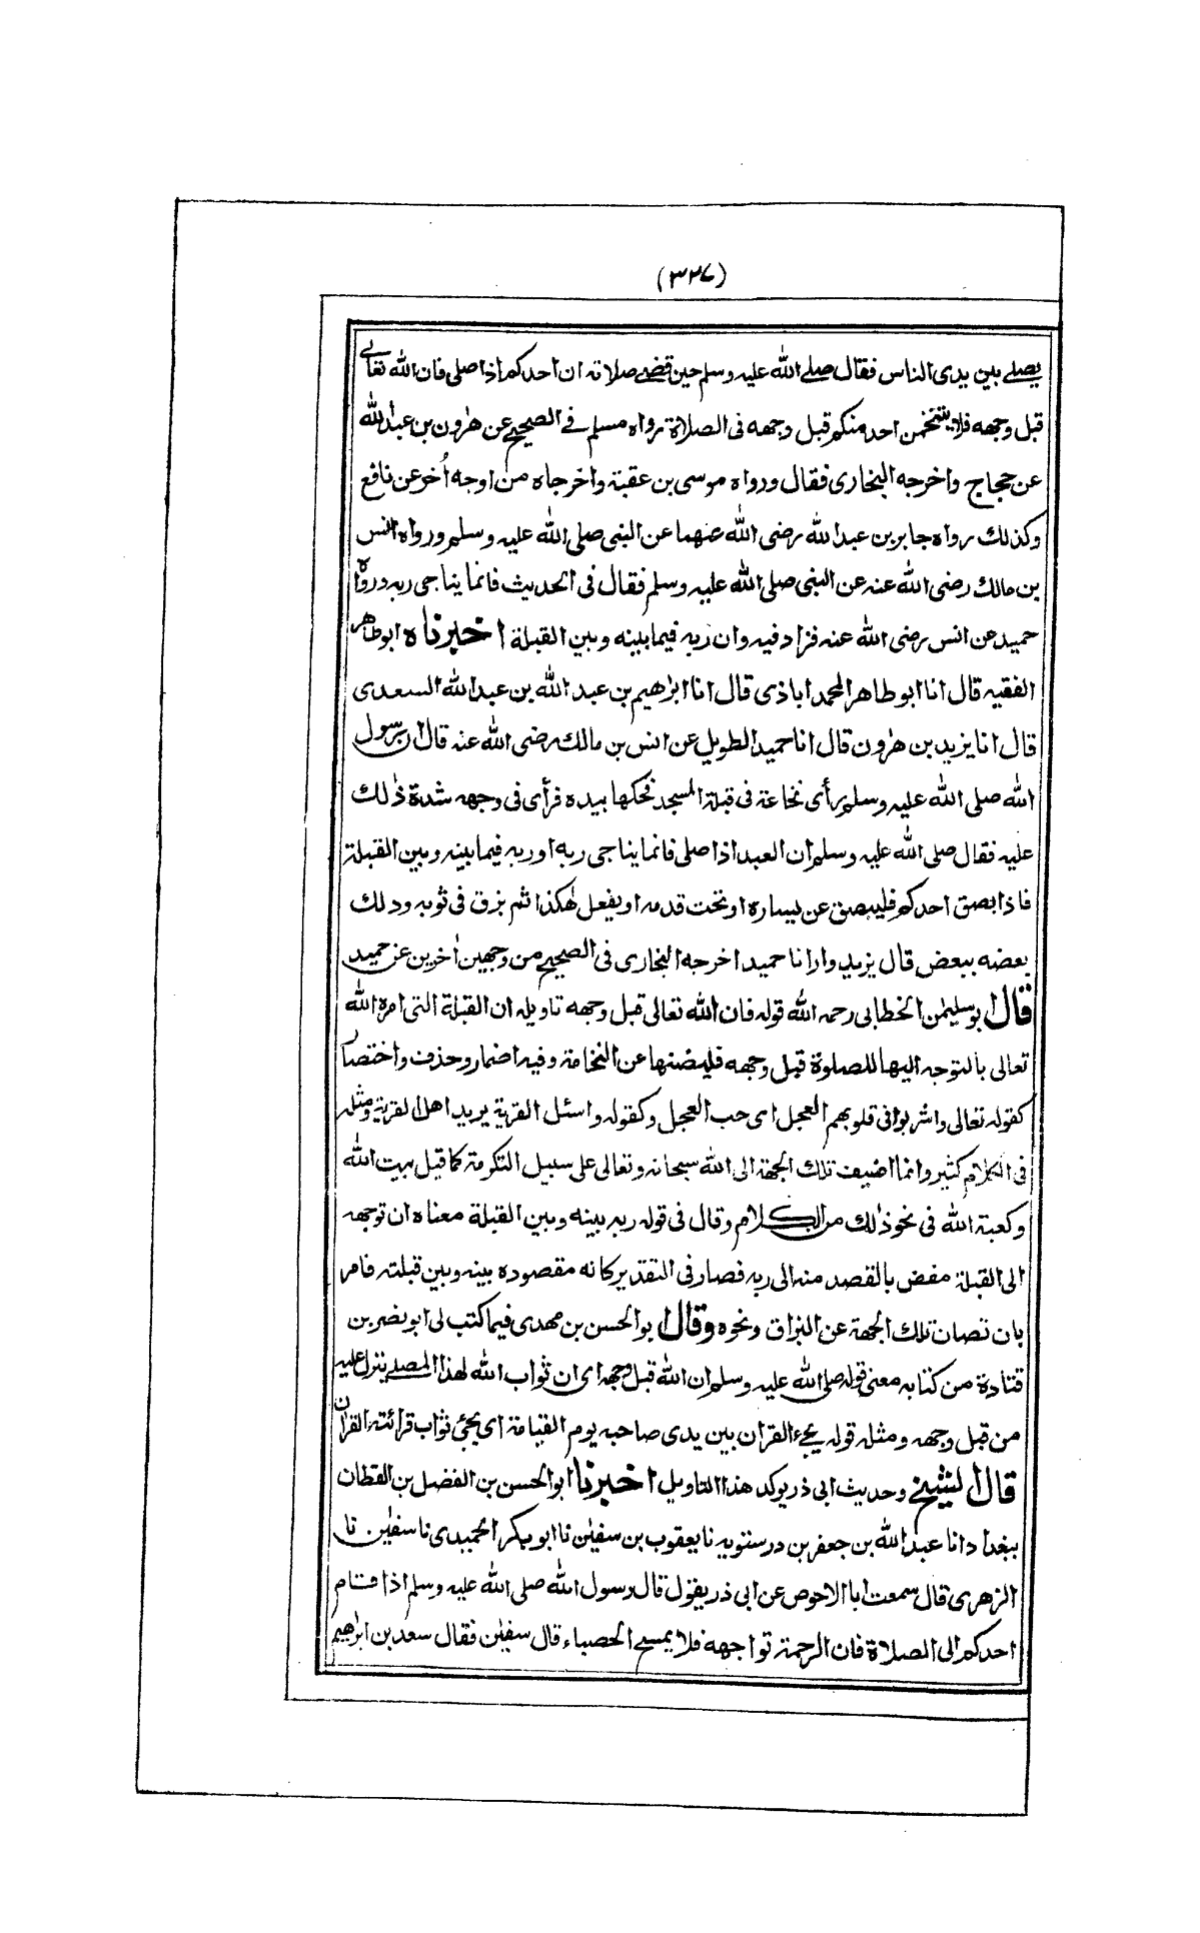 (٣٢٧)
يصلے بين يدى الناس فقال صلے الله عليه وسلم حين قضے صلاته ان احدكم اذا صلى فان الله تعالے
قبل وجهه فلا يتنخمن احد منكم قبل وجهه فى الصلاة رواه مسلم فے الصحيح عن هٰرون بن عبدالله
عن حجاج واخرجه البخارى فقال ورواه موسى بن عقبة واخرجاه من اوجه أخر عن نافع
وكذلك رواه جابر بن عبد الله رضى الله عنهما عن النبى صلى الله عليه وسلم ورواه انس
بن مالك رضى الله عنه عن النبى صلى الله عليه وسلم فقال فى الحديث فانما يناجى ربه ورواه
حميد عن انس رضى الله عنه فزاد فيه وان ربه فيما بينه وبين القبلة اخبرناه ابوطاهر
الفقيه قال انا ابو طاهر المحمداباذى قال انا ابرٰهيم بن عبد الله بن عبد الله السعدى
قال انا يزيد بن هٰرون قال انا حميد الطويل عن انس بن مالك رضى الله عنه قال ان رسول
الله صلى الله عليه وسلم رأى نخاعة فى قبلة المسجد فحكها بيده فرأى فى وجهه شدة ذٰلك
عليه فقال صلى الله عليه وسلم ان العبد اذا صلى فانما يناجى ربه او ربه فيما بينه وبين القبلة
فاذا بصق احدكم فليبصق عن يساره او تحت قدمه او يفعل هٰكذا ثم بزق فى ثوبه ودلك
بعضه ببعض قال يزيد وارانا حميد اخرجه البخارى فى الصحيح من وجهين اٰخرين عن حميد
قال ابو سليمٰن الخطابى رحمه الله قوله فان الله تعالى قبل وجهه تاويله ان القبلة التى امره الله
تعالى بالتوجه اليها للصلوة قبل وجهه فليصنها عن النخامة وفيه اضمار وحذف واختصار
كقوله تعالى واشربوا فى قلوبهم العجل اى حب العجل وكقوله واسئل القرية يريد اهل القرية ومثله
فى الكلام كثير وانما اضيف تلك الجهة الى الله سبحانه وتعالى على سبيل التكرمة كما قيل بيت الله
وكعبة الله فى نحو ذٰلك من الكلام وقال فى قوله ربه بينه وبين القبلة معناه ان توجهه
الى القبلة مفض بالقصد منه الى ربه فصار فى التقدير كانه مقصوده بينه وبين قبلته فامر
بان تصان تلك الجهة عن البزاق ونحوه وقال ابو الحسن بن مهدى فيما كتب لى ابو نصر بن
قتادة من كتابه معنى قوله صلى الله عليه وسلم ان الله قبل وجهه اى ان ثواب الله لهذا المصلے ينزل عليه
من قبل وجهه ومثله قوله يجىء القرٰان بين يدى صاحبه يوم القيامة اى يجئ ثواب قرائته القرٰان
قال الشيخ وحديث ابى ذر يوكد هذا التاويل اخبرنا ابو الحسن بن الفضل بن القطان
ببغداد انا عبد الله بن جعفر بن درستويه نا يعقوب بن سفيٰن نا ابو بكر الحميدى نا سفيٰن نا
الزهرى قال سمعت ابا الاحوص عن ابى ذر يقول قال رسول الله صلى الله عليه وسلم اذا قام
احدكم الى الصلاة فان الرحمة تواجهه فلا يمسح الحصباء قال سفيٰن فقال سعد بن ابرٰهيم